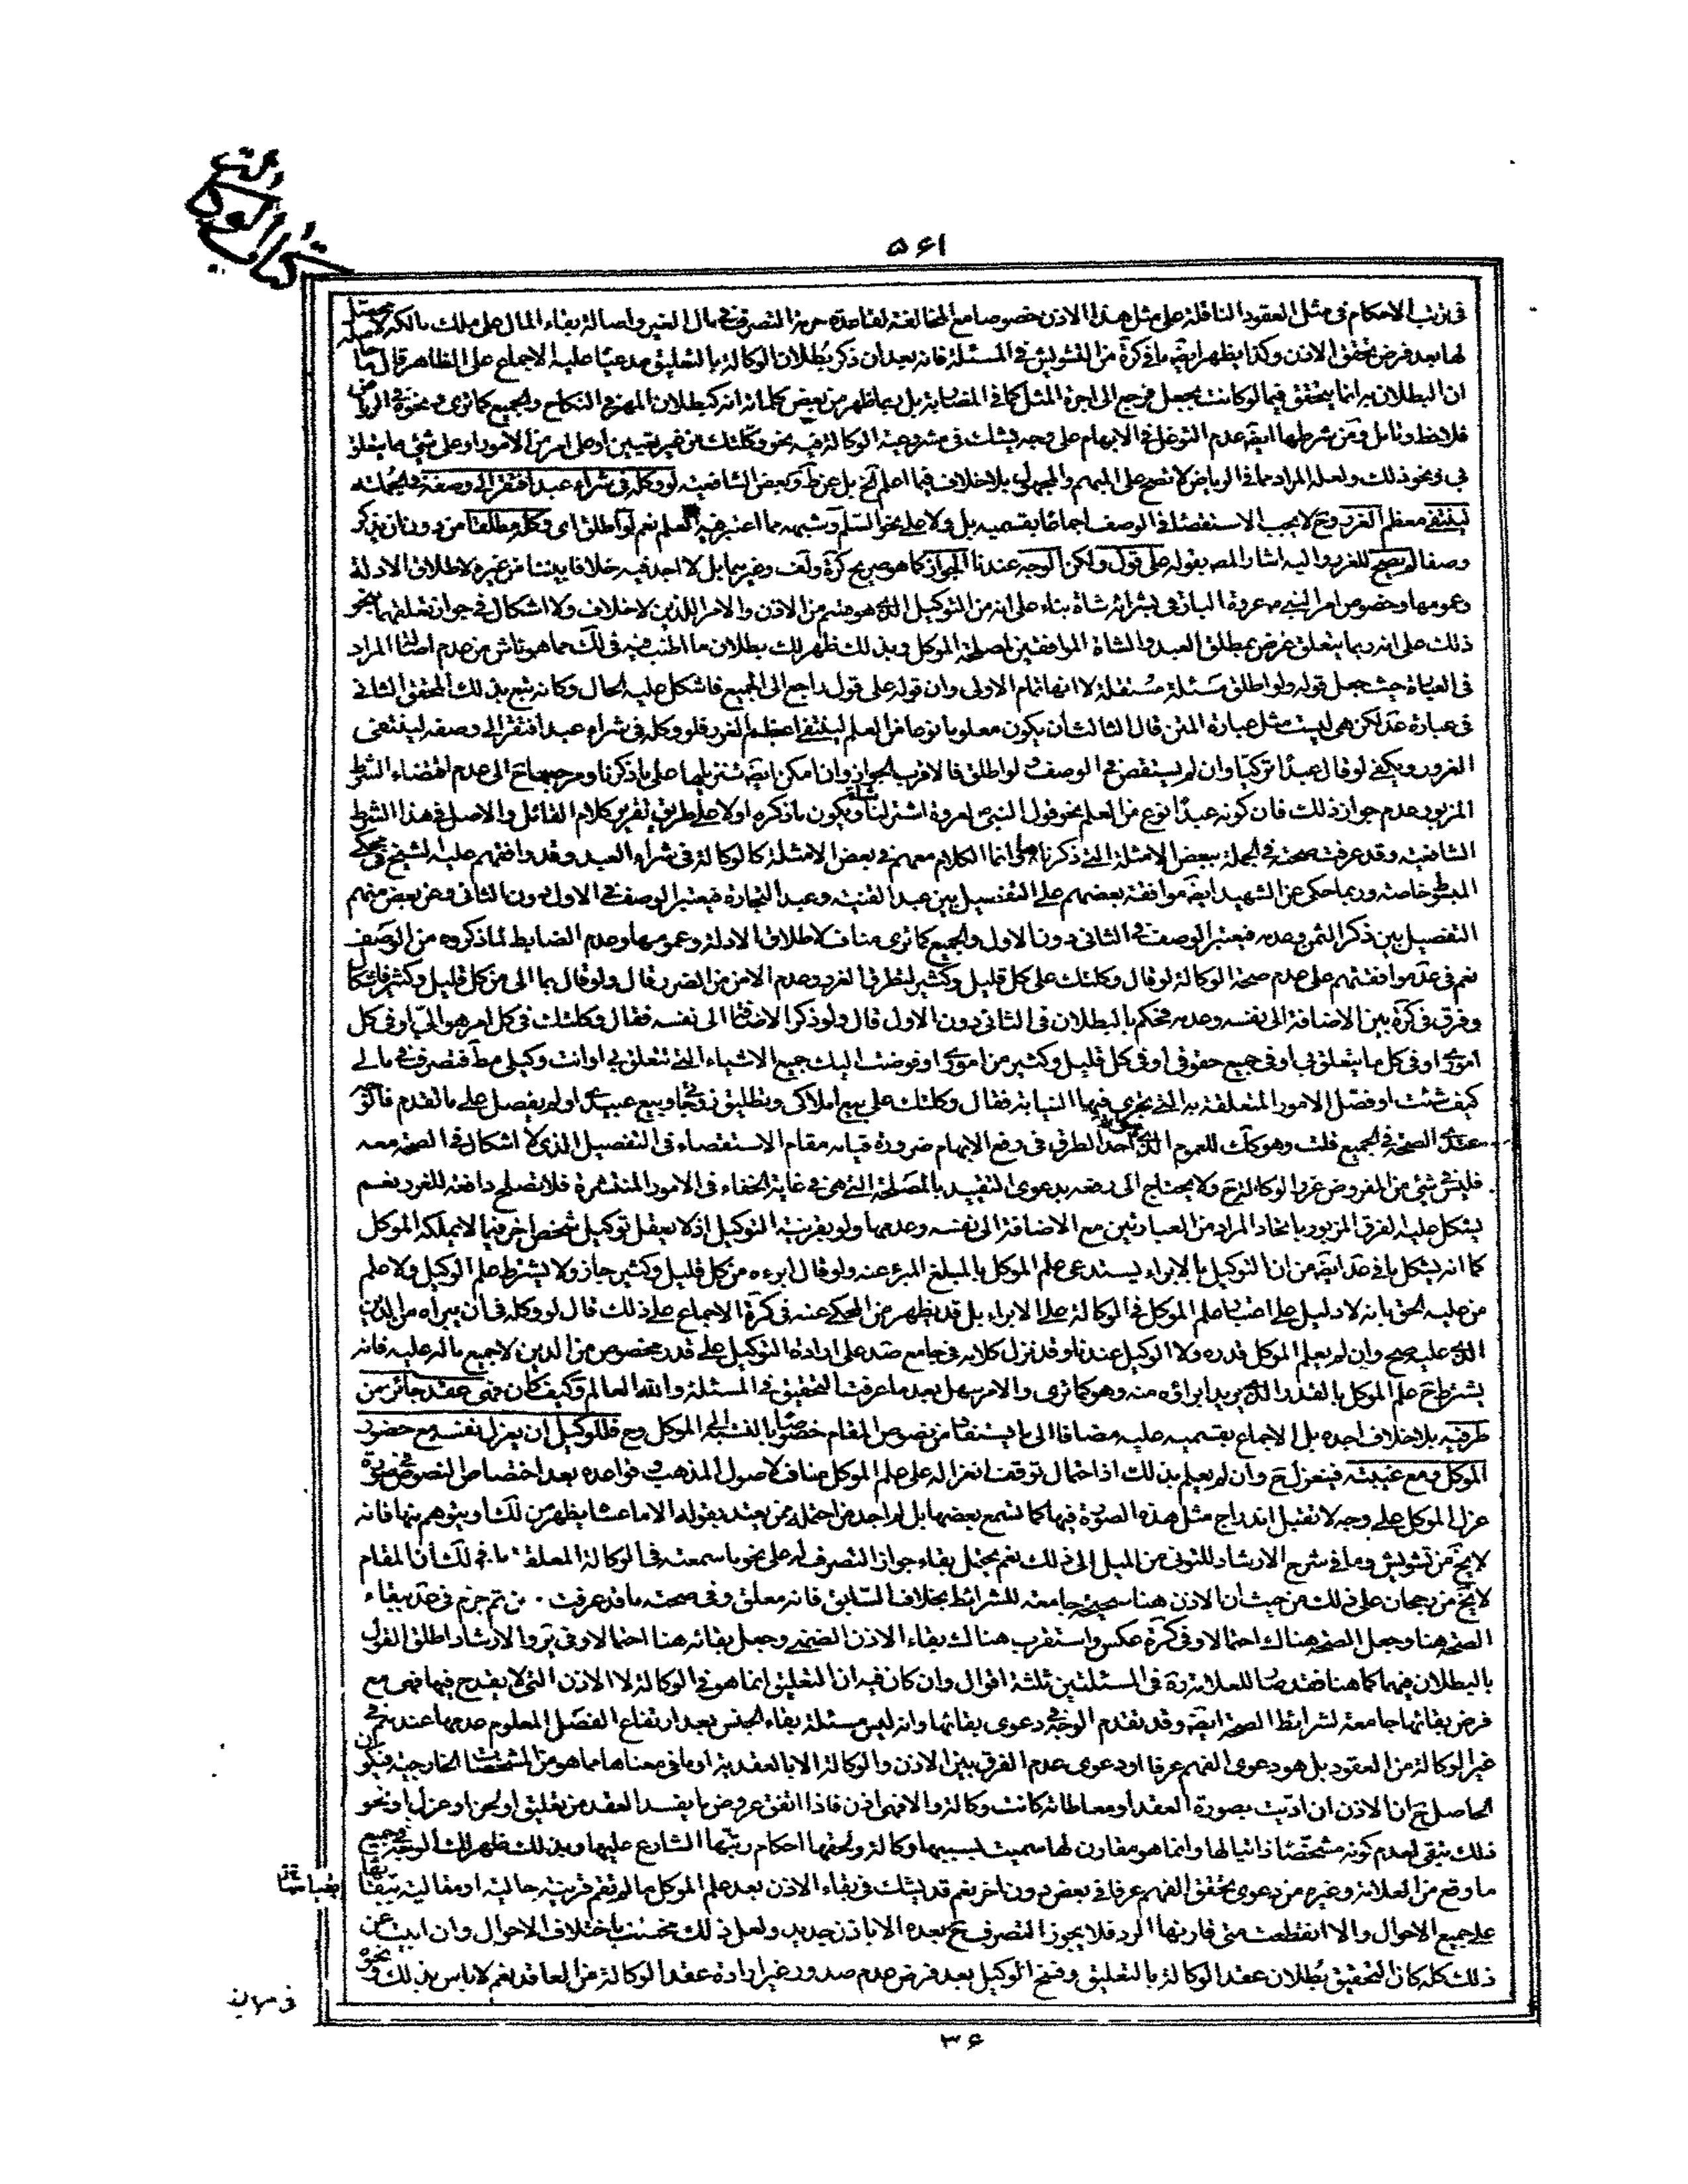 كتاب الوكالة
٥٦١
في ترتب الاحكام في مثل العقود الناقلة على مثل هذا الاذن خصوصا مع المخالفة لقاعدة حرمة التصرف في مال الغير واصالة بقاء المال على ملك مالكه
لها بعد فرض تحقق الاذن وكذا يظهر ايضا ما في كرة من التشويش في المسئلة فانه بعد ان ذكر بطلان الوكالة بالتعليق مدعيا عليه الاجماع على الظاهر قال
ان البطلان انما يتحقق فيما لو كانت بجعل فيرجع الى اجرة المثل كما في المضاربة بل ربما ظهر من بعض كلماته انه كبطلان المهر في النكاح والجميع كما ترى ونحوه في الرياض
فلاحظ وتامل ومن شرطها ايضا عدم التوغل في الابهام على وجه يشك في مشروعية الوكالة فيه نحو وكلتك من غير تعيين او على امر من الامور او على شيء مما يتعلق
بي ونحو ذلك ولعله المراد مما في الرياض لا تصح على المبهم والمجهول بلا خلاف فيما اعلم الخ بل عن ط وبعض الشافعية لو وكله في شراء عبد افتقر الى وصفه في الجملة
لينتفي معظم الغرر وح لا يجب الاستقصاء في الوصف اجماعا بقسميه بل ولا على نحو السلم وشبهه مما اعتبر فيه العلم نعم لو اطلق اى وكله مطلقا من دون ان يذكر
وصفا لم يصح للغرر واليه اشار المص بقوله على قول ولكن الوجه عندنا الجواز كما هو صريح كرة ولف وغيرهما بل لا اجد فيه خلافا بيننا من غيره لاطلاق الادلة
وعمومها وخصوص امر النبي ص عروة البارقي بشرائه شاة بناء على انه من التوكيل الذى هو منه من الاذن والامر اللذين لا خلاف ولا اشكال في جواز تعلقهما بنحو
ذلك على انه ربما يتعلق غرض بمطلق العبد والشاة الموافقين لمصلحة الموكل وبذلك ظهر لك بطلان ما اطنب فيه في لك مما هو ناش من عدم المراد
في العبارة حيث جعل قوله ولو اطلق مسئلة مستقلة لا انها تمام الاولى وان قوله على قول راجع الى الجميع فاشكل عليه الحال وكانه تبع بذلك المحقق الثاني
في عبارة عد لكن هي ليست مثل عبارة المتن قال الثالث ان يكون معلوما نوعا من العلم لينتفي اعظم الغرر فلو وكله في شراء عبد افتقر الى وصفه لينتفي
الغرور ويكفي لو قال عبدا تركيا وان لم يستقص في الوصف ولو اطلق فالاقرب الجواز وان امكن ايضا تنزيلها على ما ذكرنا ومرجعهما ح الى عدم اقتضاء الشرط
المزبور عدم جواز ذلك فان كونه عبدا نوع من العلم نحو قول النبي ص لعروة اشتر لنا شاة ويكون ما ذكره اولا على طريق تقرير كلام القائل والاصل في هذا الشرط
الشافعية وقد عرفت صحته في الجملة ببعض الامثلة التي ذكرناها وانما الكلام معهم في بعض الامثلة كالوكالة في شراء العبد وقد وافقهم عليه الشيخ في محكي
المبسوط خاصة وربما حكي عن الشهيد ايضا موافقة بعضهم على التفصيل بين عبد القنية وعبد التجارة فيعتبر الوصف في الاول دون الثاني وعن بعض منهم
التفصيل بين ذكر الثمن وعدمه فيعتبر الوصف في الثاني دون الاول والجميع كما ترى مناف لاطلاق الادلة وعمومها وعدم الضابط لما ذكروه من الوصف
نعم في عد موافقتهم على عدم صحة الوكالة لو قال وكلتك على كل قليل وكثير لتطرق الغرر وعدم الامن من الضرر قال ولو قال بما الى من كل قليل وكثير فاشكال
وفرق في كرة بين الاضافة الى نفسه وعدمه فحكم بالبطلان في الثاني دون الاول قال ولو ذكر الاضافة الى نفسه فقال وكلتك في كل امر هو الي او في كل
اموري او في كل ما يتعلق بي او في جميع حقوقي او في كل قليل وكثير من اموري او فوضت اليك جميع الاشياء التي تتعلق بي او انت وكيلي مط فتصرف في مالي
كيف شئت او فصل الامور المتعلقة به التي تجري فيها النيابة فقال وكلتك على بيع املاكي وتطليق زوجاتي وبيع عبيدي او لم يفصل على ما تقدم فالاقوى
عندي الصحة في الجميع قلت وهو كك للعموم الذي احد الطرق في رفع الابهام ضرورة قيامه مقام الاستقصاء في التفصيل الذي لا اشكال في الصحة معه
فليس شيء من المفروض غرر الوكالة ح ولا يحتاج الى رفعه بدعوى التقييد بالمصلحة التي هي في غاية الخفاء في الامور المنتشرة فلا تصلح دافعة للغرر نعم
يشكل عليه الفرق المزبور باتحاد المراد من العبارتين مع الاضافة الى نفسه وعدمها ولو بقرينة التوكيل اذ لا يعقل توكيل شخص اخر فيما لا يملكه الموكل
كما انه يشكل ما في عد ايضا من ان التوكيل بالابراء يستدعي علم الموكل بالمبلغ المبرء عنه ولو قال ابرءه من كل قليل وكثير جاز ولا يشترط علم الوكيل ولا علم
من عليه الحق بانه لا دليل على اعتبار علم الموكل في الوكالة على الابراء بل قد يظهر من المحكي عنه في كرة الاجماع على ذلك قال لو وكله في ان يبراه من الدين
الذي عليه صح وان لم يعلم الموكل قدره ولا الوكيل عندنا وقد نزل كلامه في جامع صد على ارادة التوكيل على قدر مخصوص من الدين لا جميع ماله عليه فانه
يشترط ح علم الموكل بالقدر الذي يريد ابراؤه منه وهو كما ترى والامر سهل بعد ما عرفت التحقيق في المسئلة والله العالم وكيف كان فهي عقد جائز من
طرفيه بلا خلاف اجده بل الاجماع بقسميه عليه مضافا الى ما يستفاد من نصوص المقام خصوصا بالنسبة الى الموكل وح فللوكيل ان يعزل نفسه مع حضور
الموكل ومع غيبته فينعزل ح وان لم يعلم بذلك اذ احتمال توقف انعزاله على علم الموكل مناف لاصول المذهب وقواعده بعد اختصاص النصوص في صورة
عزل الموكل على وجه لا تقبل اندراج مثل هذه الصورة فيها كما تسمع بعضها بل لم اجد من احتمله ممن يعتد بقوله الا ما عساه يظهر من لك او يتوهم منها فانه
لا يخ من تشويش وما في شرح الارشاد للتوني من الميل الى ذلك نعم يحتمل بقاء جواز التصرف له على نحو ما سمعته في الوكالة المعلقة بل في لك ان المقام
لا يخ من رجحان على ذلك من حيث ان الاذن هنا صحيحة جامعة للشرائط بخلاف السابق فانه معلق وفي صحته ما قد عرفت ومن ثم جزم في عد ببقاء
الصحة هنا وجعل الصحة هناك احتمالا وفي كرة عكس واستقرب هناك بقاء الاذن الضمني وجعل بقائه هنا احتمالا وفي ير والارشاد اطلق القول
بالبطلان فيهما كما هنا فقد صار للعلامة ره في المسئلتين ثلثة اقوال وان كان فيه ان التعليق انما هو في الوكالة لا الاذن التي لا يقدح فيها فهي مع
فرض بقائها جامعة لشرائط الصحة ايضا وقد تقدم الوجه في دعوى بقائها وانه ليس مسئلة بقاء الجنس بعد ارتفاع الفصل المعلوم عدمها عندهم في
غير الوكالة من العقود بل هو دعوى الفهم عرفا او دعوى عدم الفرق بين الاذن والوكالة الا بالعقدية او ما في معناها مما هو من المشخصات الخارجية فيكون
الحاصل ح ان الاذن ان اديت بصورة العقد او معاطاته كانت وكالة والا فهي اذن فاذا اتفق عروض ما يفسد العقد من تعليق او لحن او عزل او نحو
ذلك تبقى لعدم كونه مشخصا ذاتيا لها وانما هو مقارن لها سميت بسببها وكالة ولحقها احكام رتبها الشارع عليها وبذلك ظهر لك الوجه في جميع
ما وقع من العلامة وغيره من دعوى تحقق الفهم عرفا في بعض دون اخر نعم قد يشك في بقاء الاذن بعد علم الموكل ما لم تقم قرينة حالية او مقالية
على جميع الاحوال والا انقطعت متى قارنها الرد فلا يجوز التصرف ح بعده الا باذن جديد ولعل ذلك مختلف باختلاف الاحوال وان ابيت عن
ذلك كله كان التحقيق بطلان عقد الوكالة بالتعليق وفسخ الوكيل بعد فرض عدم صدور غير ارادة عقد الوكالة من العاقد نعم لا باس بذلك ونحوه
٣٦